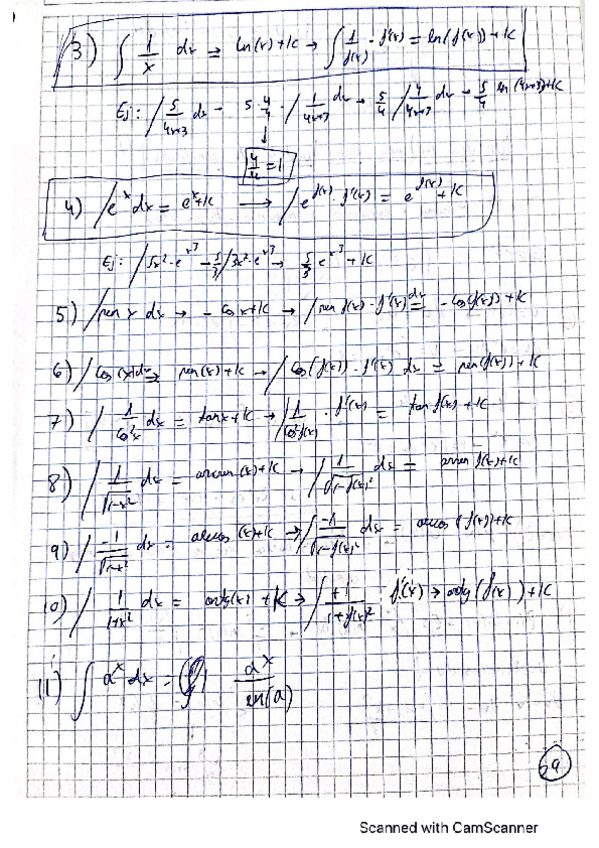 3) ∫ 1/x dx → ln(x)+K → ∫ 1/f(x) · f'(x) = ln(f(x))+K
Ej: ∫ 5/4x+3 dx → 5 · 4/4 · ∫ 1/4x+3 dx → 5/4 ∫ 4/4x+3 dx → 5/4 ln(4x+3)+K
4/4 = 1
4) ∫ e^x dx = e^x+K → ∫ e^f(x) · f'(x) = e^f(x) + K
Ej: ∫ 5x² · e^x³ → 5/3 ∫ 3x² · e^x³ → 5/3 e^x³ + K
5) ∫ sen x dx → - cos x+K → ∫ sen f(x) · f'(x) dx = - cos(f(x))+K
6) ∫ cos(x)dx → sen(x)+K → ∫ cos(f(x)) · f'(x) dx = sen(f(x))+K
7) ∫ 1/cos²x dx = tan x+K → ∫ 1/cos²f(x) · f'(x) = tan f(x)+K
8) ∫ 1/√1-x² dx = arcsen(x)+K → ∫ 1/√1-f(x)² dx = arcsen f(x)+K
9) ∫ -1/√1-x² dx = arccos(x)+K → ∫ -1/√1-f(x)² dx = arccos(f(x))+K
10) ∫ 1/1+x² dx = arctg(x)+K → ∫ +1/1+f(x)² f'(x) → arctg(f(x))+K
11) ∫ a^x dx = a^x/ln(a)
Scanned with CamScanner